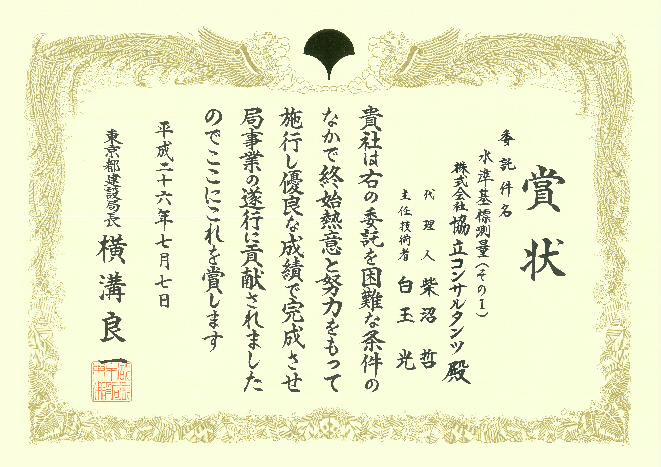 賞状
委託件名
水準基標測量(その1)
株式会社 協立コンサルタンツ 殿
代理人 柴沼 哲
主任技術者 白玉 光
貴社は右の委託を困難な条件の
なかで終始熱意と努力をもって
施行し優良な成績で完成させ
局事業の遂行に貢献されました
のでここにこれを賞します
平成二十六年七月七日
東京都建設局長 横溝良一